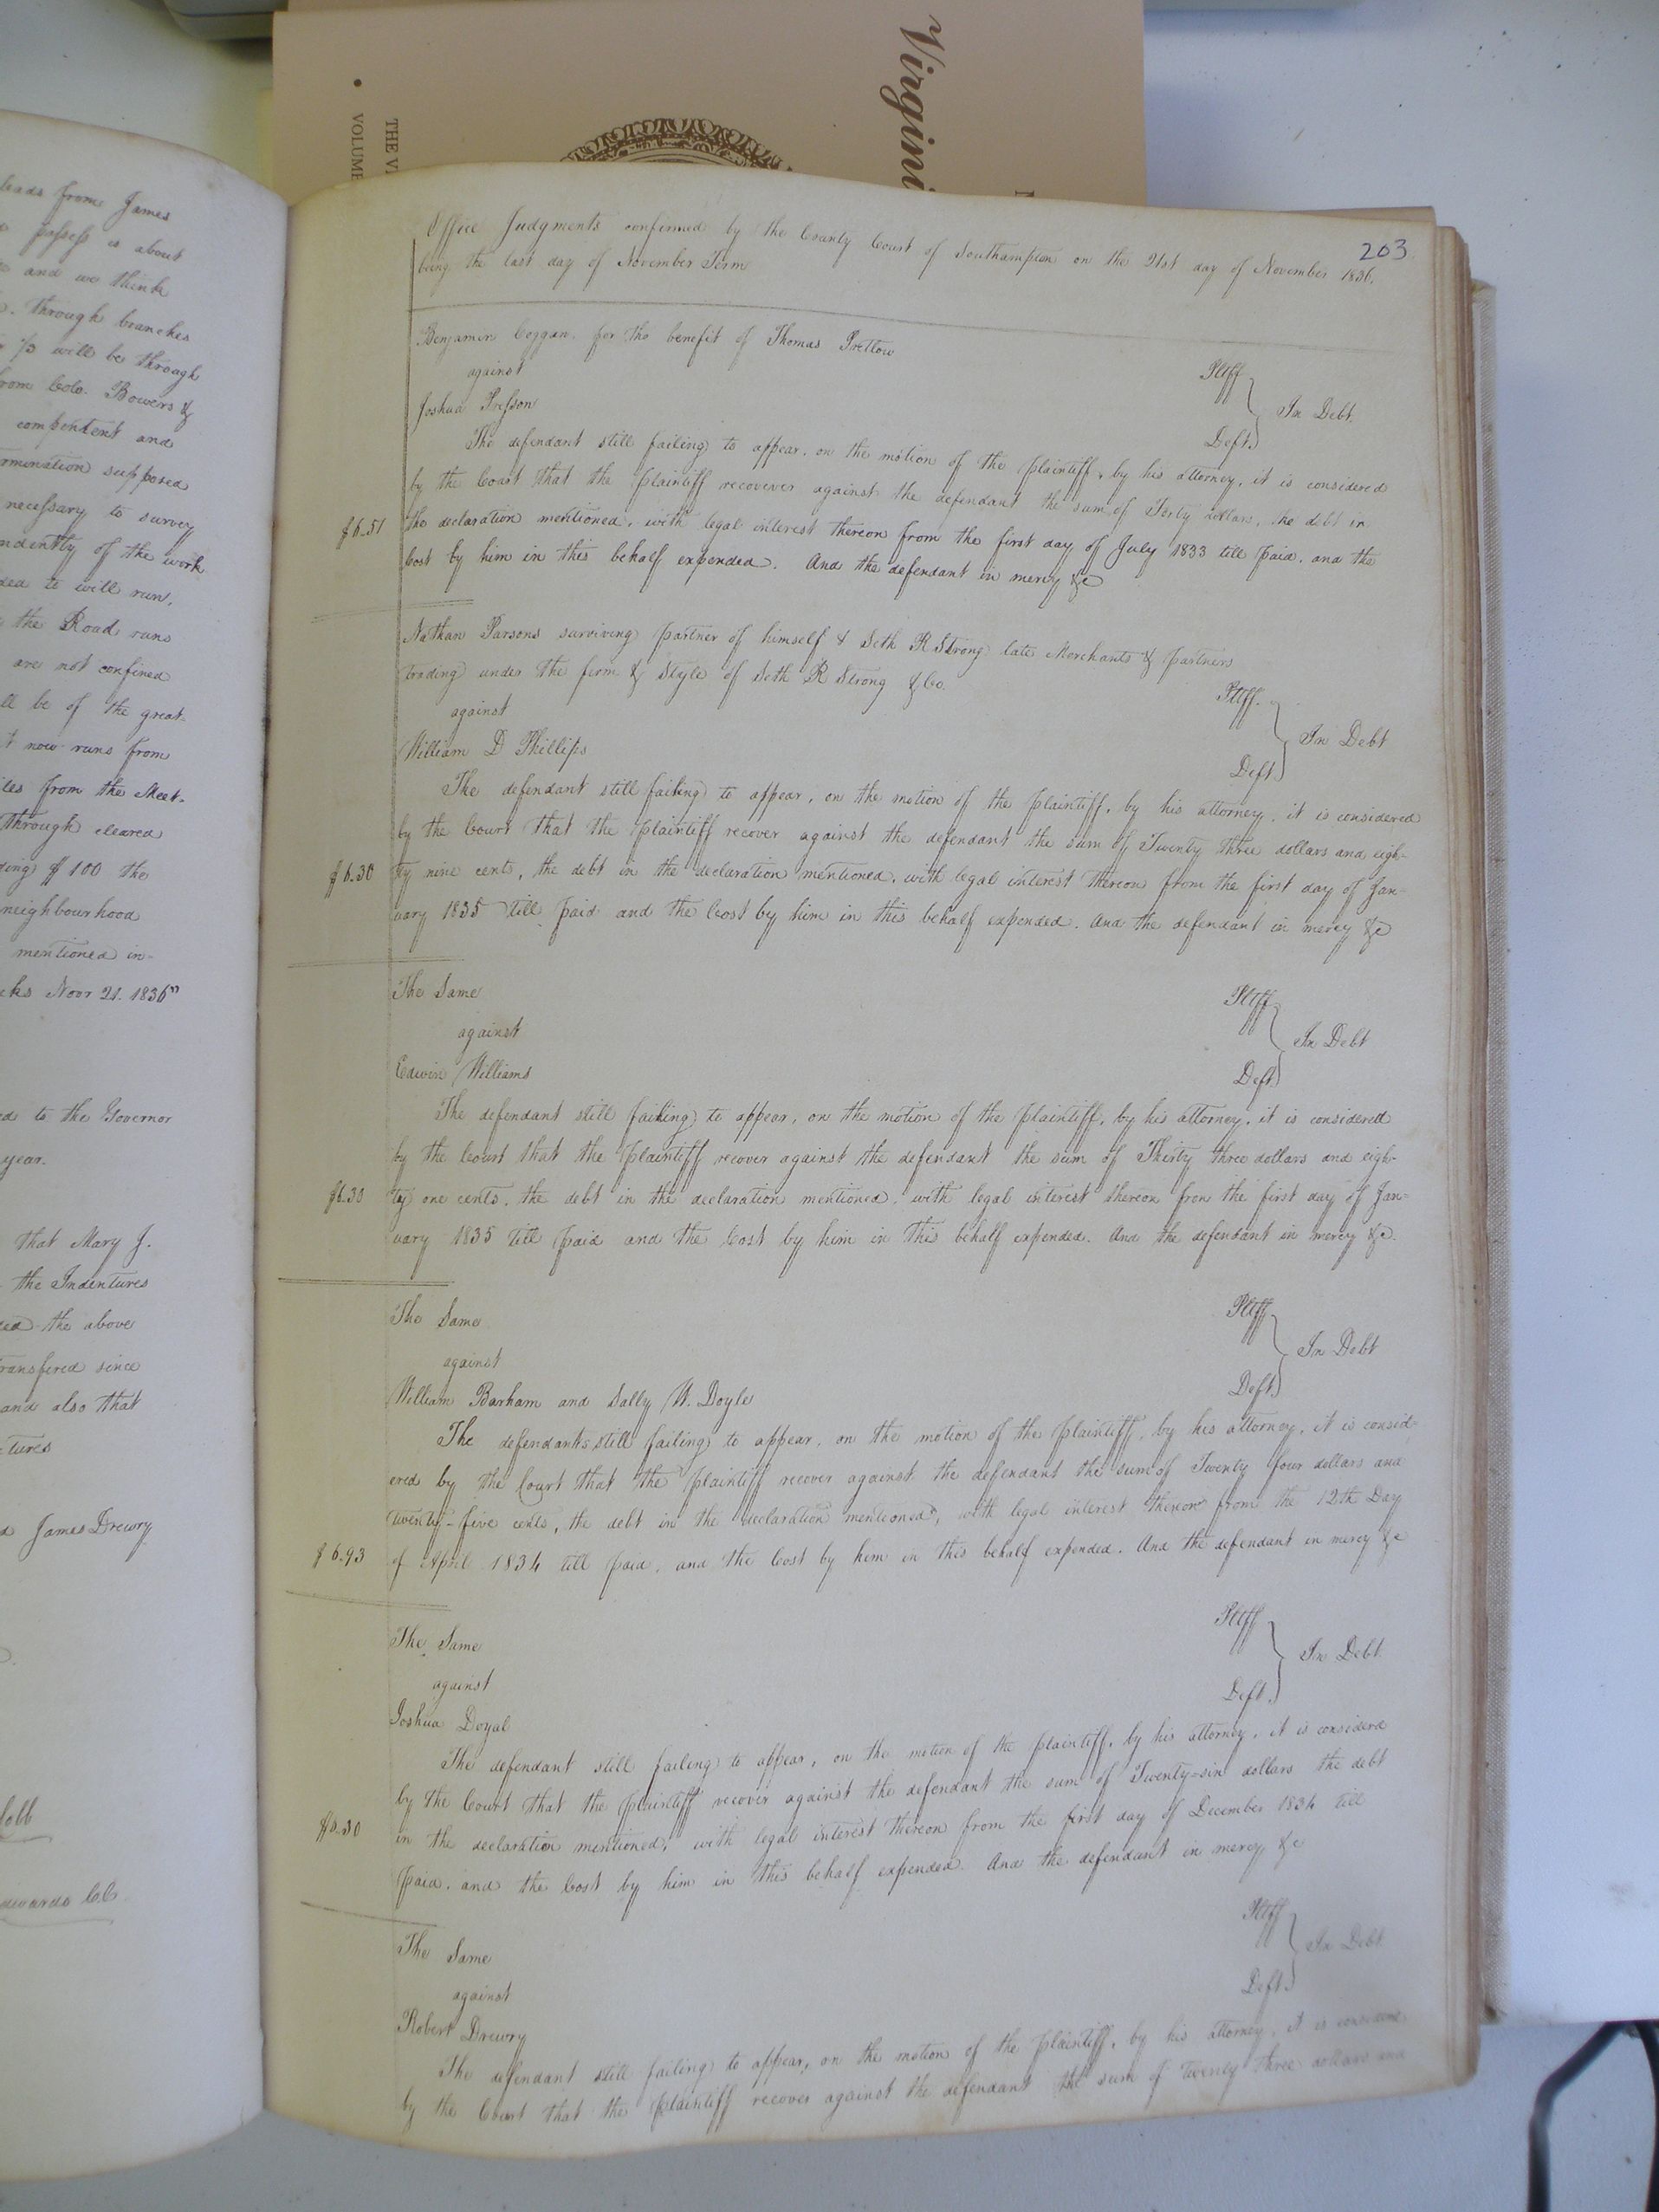 Virgini
THE V
VOLUME
leads from James
possess is about
and we think
through branches
1/3 will be through
from Colo. Bowers &
compentent and
rmination supposed
necessary to survey
ndently of the work
ded to will run,
the Road runs
are not confined
ll be of the great-
now runs from
les from the Meet-
through cleared
ding $100 the
neighbourhood
mentioned in-
cks Novr 21. 1836"
ed to the Governor
year.
that Mary J.
the Indentures
ed the above
ransfered since
and also that
tures
James Drewry
Cobb
dwards CC
203
Office Judgments confirmed by the County Court of Southampton on the 21st day of November 1836.
being the last day of November Term
Benjamin Coggan for the benefit of Thomas Pretlow
Pltff
against
In Debt.
Joshua Presson
Deft.
The defendant still failing to appear, on the motion of the plaintiff, by his attorney, it is considered
by the Court that the plaintiff recover against the defendant the sum of Forty dollars, the debt in
$6.51 the declaration mentioned, with legal interest thereon from the first day of July 1833 till paid, and the
Cost by him in this behalf expended. And the defendant in mercy &c
Nathan Parsons surviving partner of himself & Seth R Strong late Merchants & partners
trading under the firm & Style of Seth R Strong & Co.
Pltff.
against
In Debt
William D Phillips
Deft.
The defendant still failing to appear, on the motion of the plaintiff, by his attorney, it is considered
by the Court that the plaintiff recover against the defendant the sum of Twenty three dollars and eigh-
$6.30 ty nine cents, the debt in the declaration mentioned, with legal interest thereon from the first day of Jan-
uary 1835 till paid and the Cost by him in this behalf expended. And the defendant in mercy &c
The Same
Pltff
against
In Debt
Edwin Williams
Deft.
The defendant still failing to appear, on the motion of the plaintiff, by his attorney, it is considered
by the Court that the plaintiff recover against the defendant the sum of Thirty three dollars and eigh-
$6.30 ty one cents, the debt in the declaration mentioned, with legal interest thereon from the first day of Jan-
uary 1835 till paid and the Cost by him in this behalf expended. And the defendant in mercy &c.
The Same
Pltff
against
In Debt
William Barham and Sally W. Doyle
Deft.
The defendants still failing to appear, on the motion of the plaintiff, by his attorney, it is consid-
ered by the Court that the plaintiff recover against the defendant the sum of Twenty four dollars and
twenty-five cents, the debt in the declaration mentioned, with legal interest thereon from the 12th Day
$6.93 of April 1834 till paid, and the Cost by him in this behalf expended. And the defendant in mercy &c
The Same
Pltff
against
In Debt
Joshua Doyal
Deft.
The defendant still failing to appear, on the motion of the plaintiff, by his attorney, it is considerd
by the Court that the plaintiff recover against the defendant the sum of Twenty-six dollars the debt
$6.30 in the declaration mentioned, with legal interest thereon from the first day of December 1834 till
paid, and the Cost by him in this behalf expended. And the defendant in mercy &c
The Same
Pltff
against
In Debt
Robert Drewry
Deft.
The defendant still failing to appear, on the motion of the plaintiff, by his attorney, it is considere
by the Court that the plaintiff recover against the defendant the sum of Twenty three dollars and